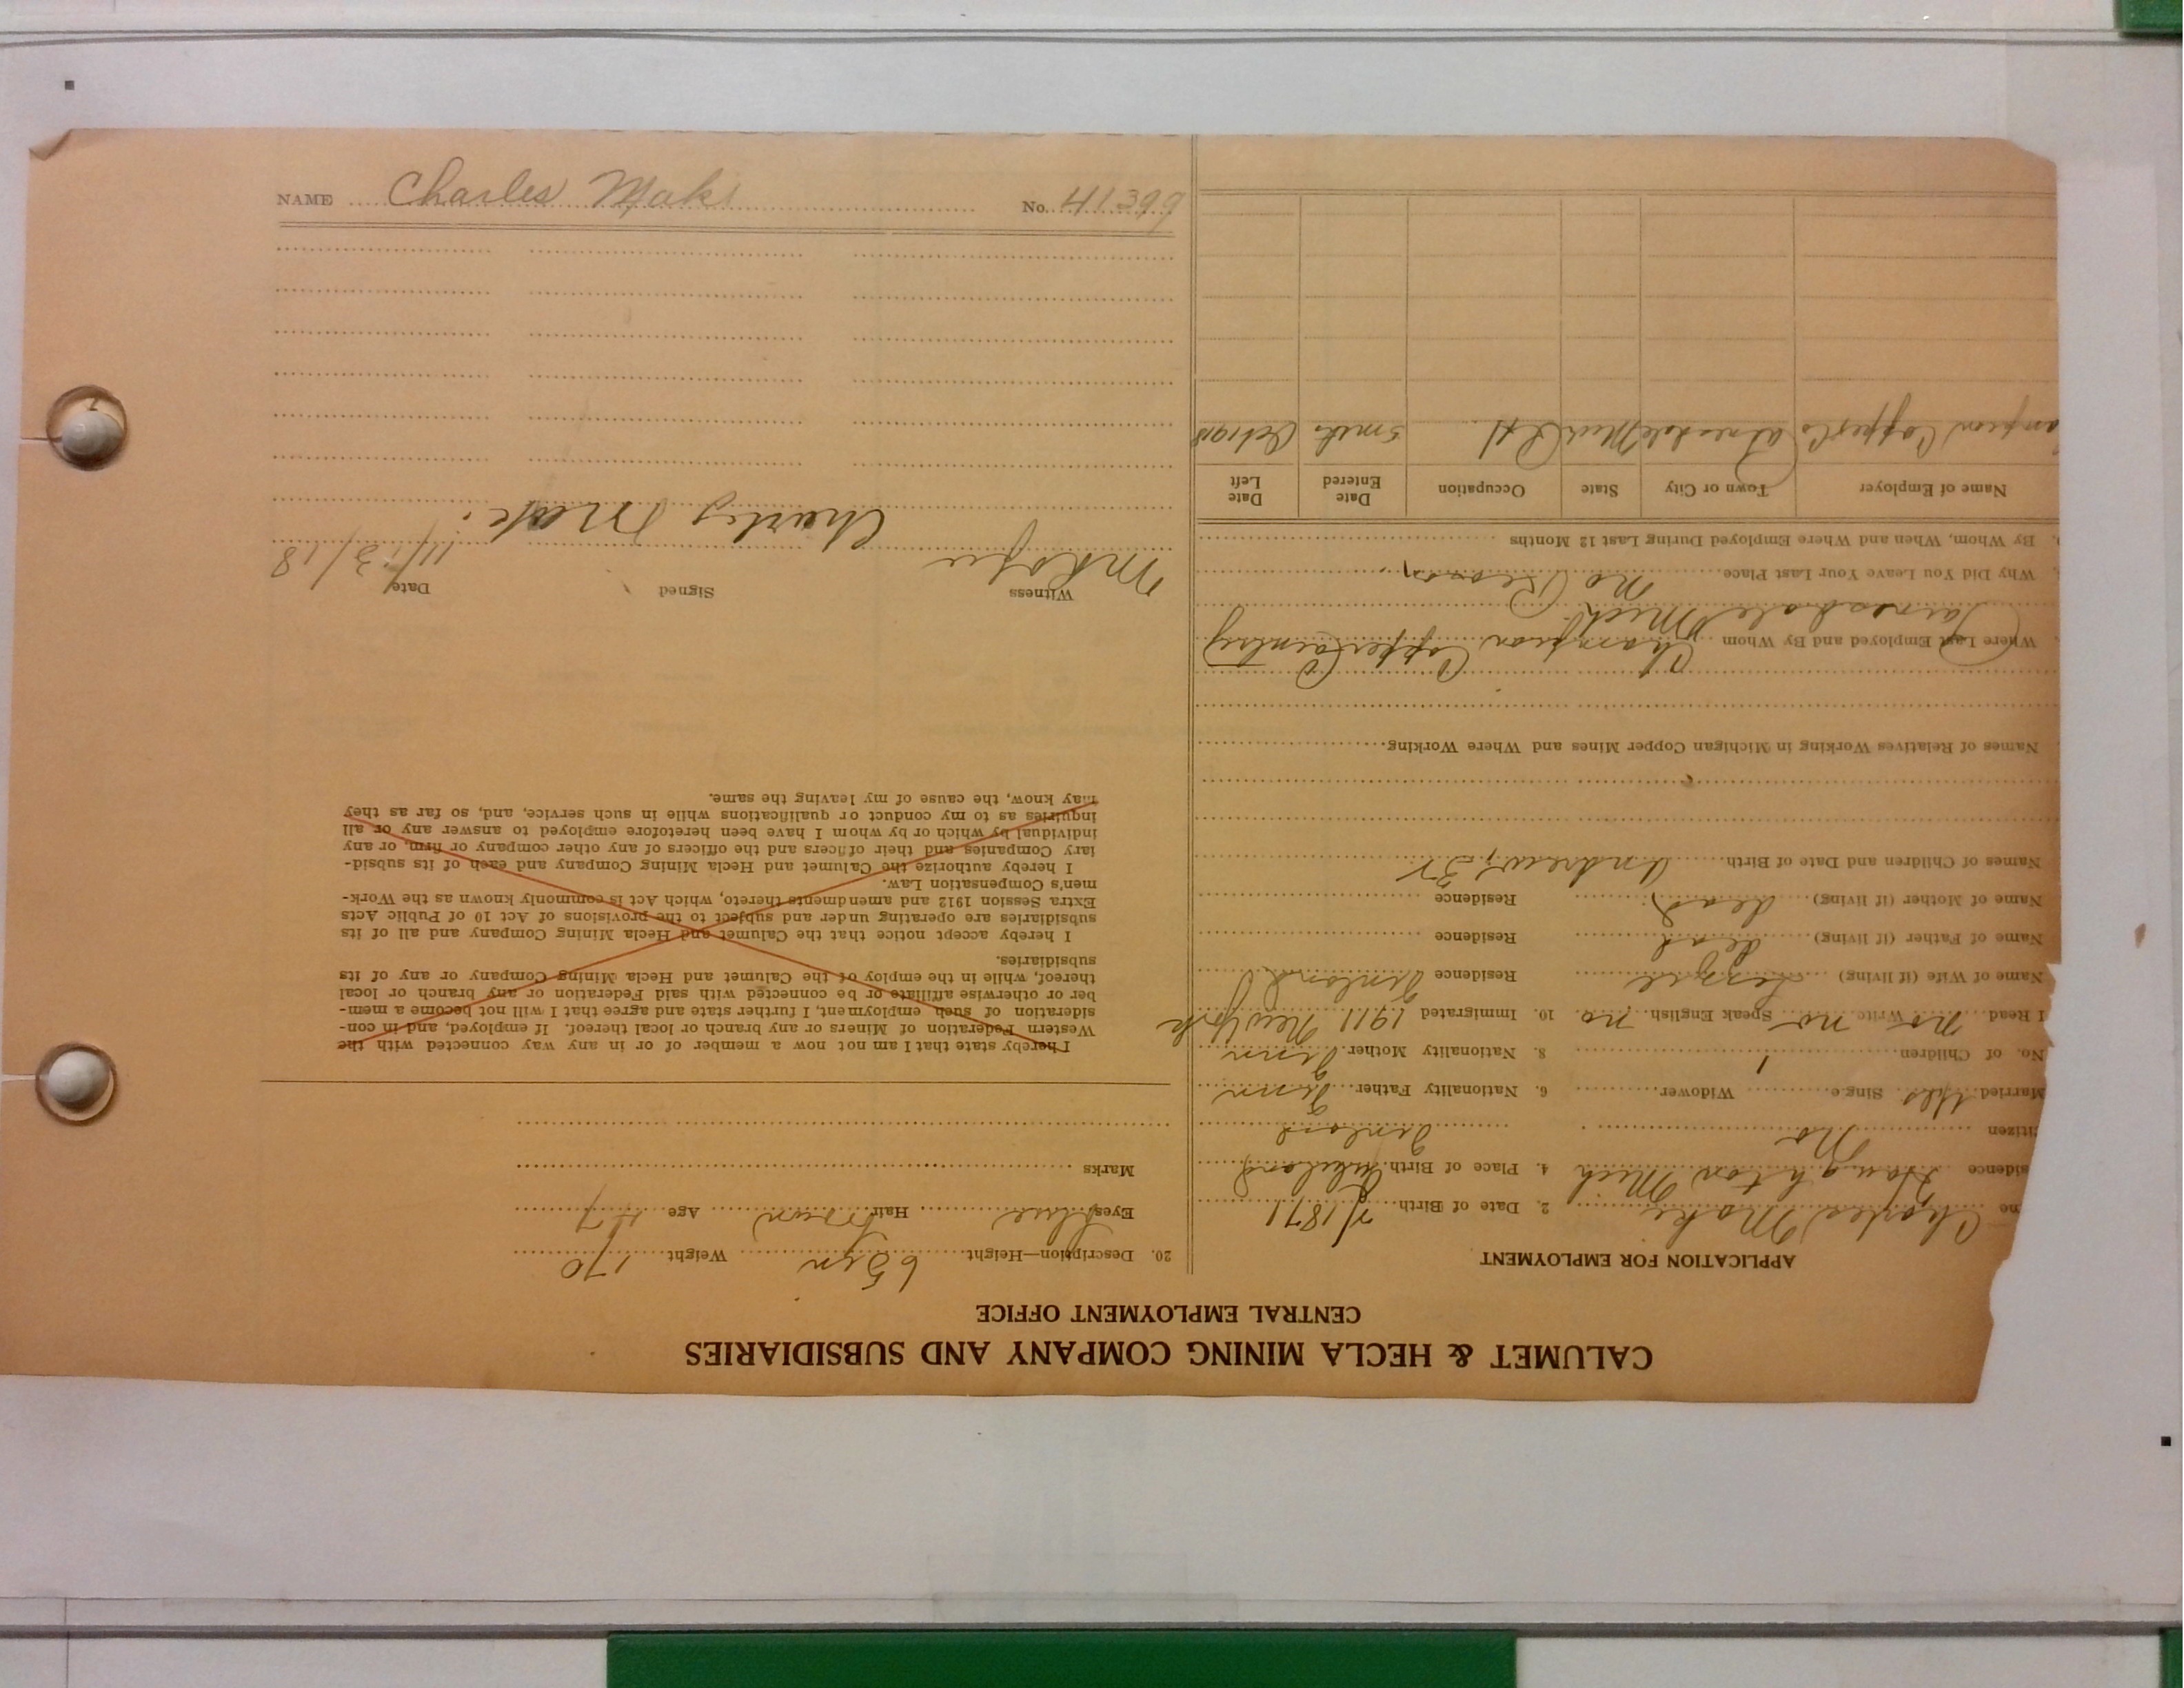 NAME Charles Maki No. 41399
CALUMET & HECLA MINING COMPANY AND SUBSIDIARIES
CENTRAL EMPLOYMENT OFFICE
APPLICATION FOR EMPLOYMENT
me Charles Maki 2. Date of Birth 7/1871
sidence Houghton Mich 4. Place of Birth
itizen No Finland
Married Yes Single Widower 6. Nationality Father Finn
No. of Children 1 8. Nationality Mother Finn
I Read no Write no Speak English no 10. Immigrated 1911 New York
Name of Wife (if living) Lizzie Residence Finland
Name of Father (if living) dead Residence
Name of Mother (if living) dead Residence
Names of Children and Date of Birth Andrew,
Names of Relatives Working in Michigan Copper Mines and Where Working
Where Last Employed and By Whom Champion Copper
Painesdale Mich.
Why Did You Leave Your Last Place No Reason
By Whom, When and Where Employed During Last 12 Months
Name of Employer Town or City State Occupation Date Entered Date Left
ampion Copper Co Painesdale Mich 3 mths Oct 1918
20. Description—Height 65 in Weight 170
Eyes Blue Hair Brown Age 47
Marks
I hereby state that I am not now a member of or in any way connected with the
Western Federation of Miners or any branch or local thereof. If employed, and in con-
sideration of such employment, I further state and agree that I will not become a mem-
ber or otherwise affiliate or be connected with said Federation or any branch or local
thereof, while in the employ of the Calumet and Hecla Mining Company or any of its
subsidiaries.
I hereby accept notice that the Calumet and Hecla Mining Company and all of its
subsidiaries are operating under and subject to the provisions of Act 10 of Public Acts
Extra Session 1912 and amendments thereto, which Act is commonly known as the Work-
men's Compensation Law.
I hereby authorize the Calumet and Hecla Mining Company and each of its subsid-
iary Companies and their officers and the officers of any other company or firm, or any
individual by which or by whom I have been heretofore employed to answer any or all
inquiries as to my conduct or qualifications while in such service, and, so far as they
may know, the cause of my leaving the same.
Witness Signed Date
Charley Maki 11/13/18